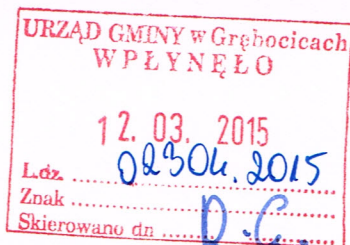 URZĄD GMINY w Grębocicach
WPŁYNĘŁO
12. 03. 2015
L.dz. 02304.2015
Znak
Skierowano dn D.C.